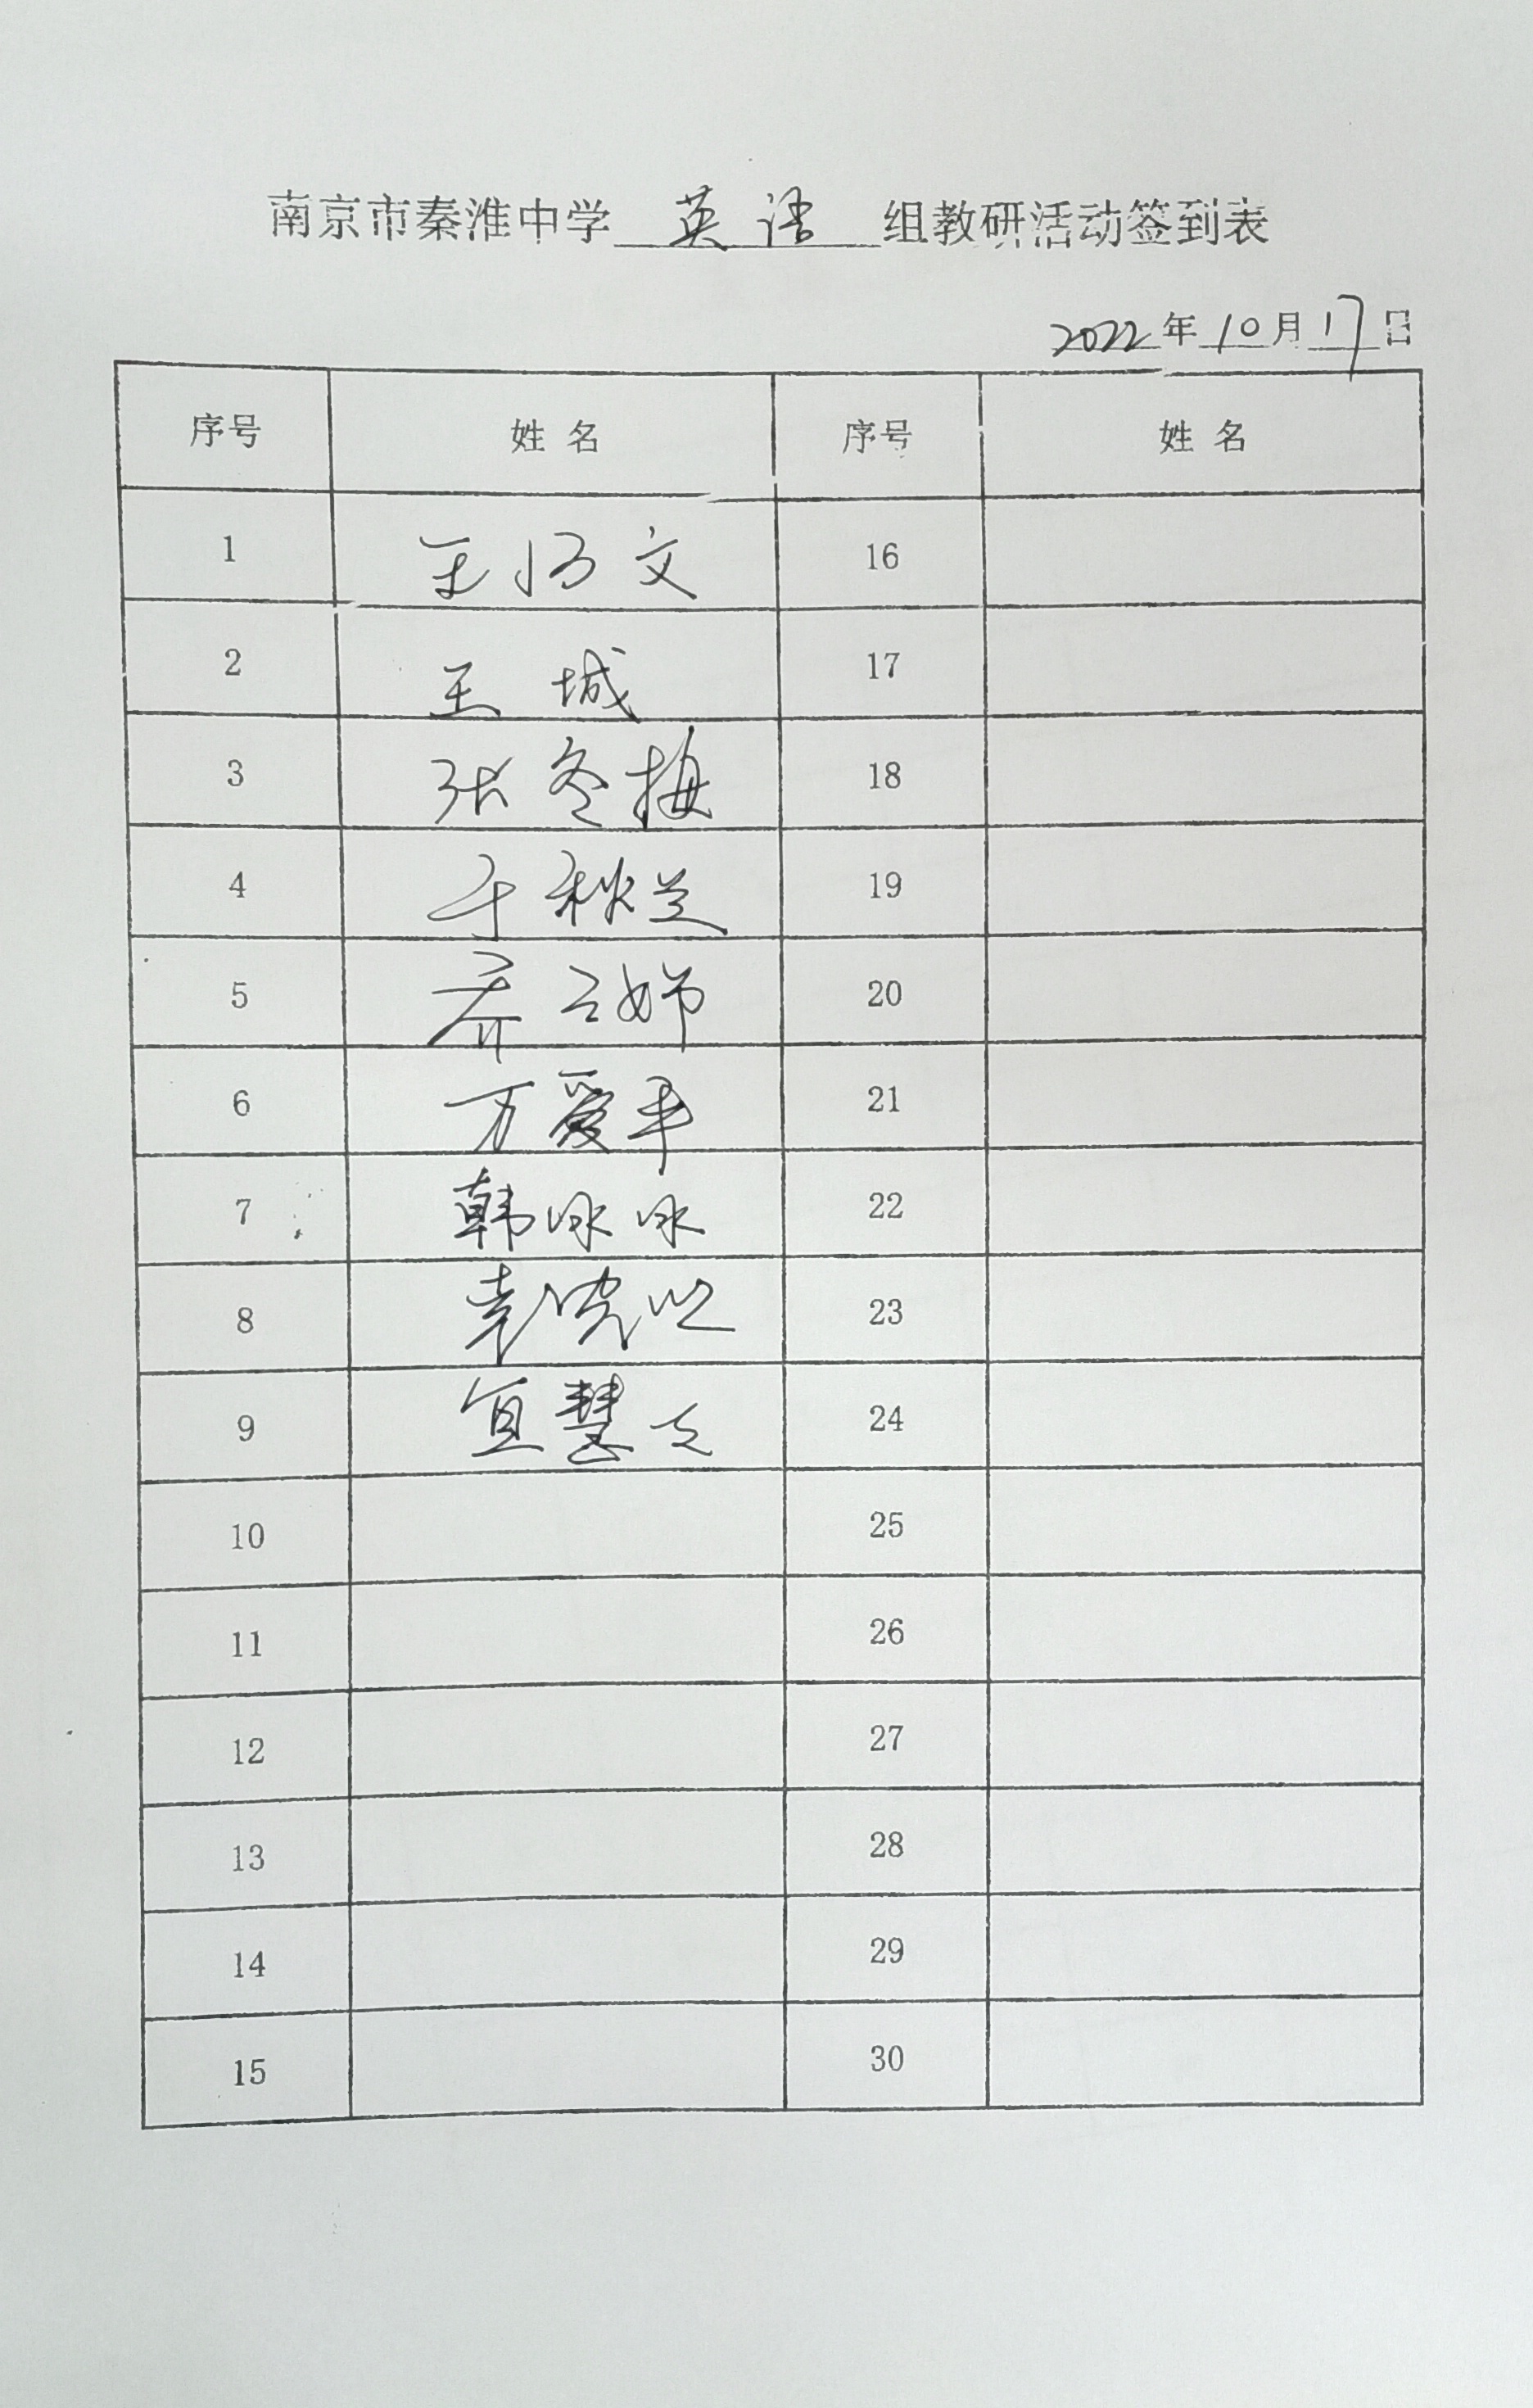 南京市秦淮中学 英语 组教研活动签到表
2022年10月17日
序号 姓名 序号 姓名
1 王 文 16
2 王城 17
3 张冬梅 18
4 秋兰 19
5 乔 娣 20
6 万爱平 21
7 韩咏咏 22
8 袁晓 23
9 宣慧 24
10 25
11 26
12 27
13 28
14 29
15 30